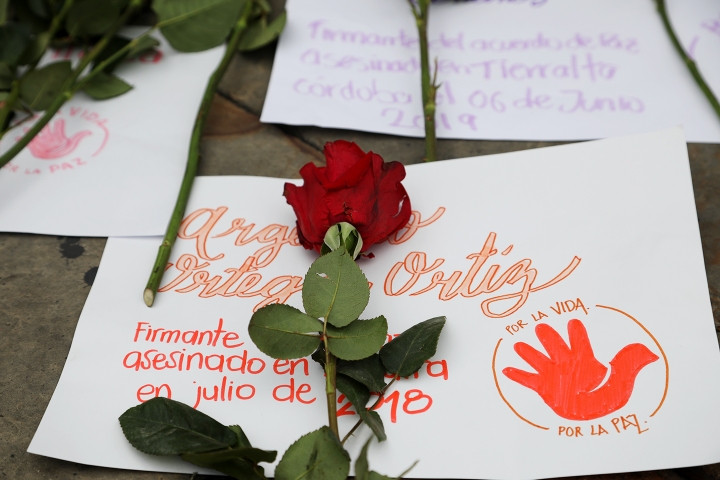 Firmante del acuerdo de Paz
asesinado en Tierralta
córdoba el 06 de Junio
2019
VIDA.
POR LA PAZ
Ortiz
Firmante
asesinado en
en julio de 2018
POR LA VIDA.
POR LA PAZ.